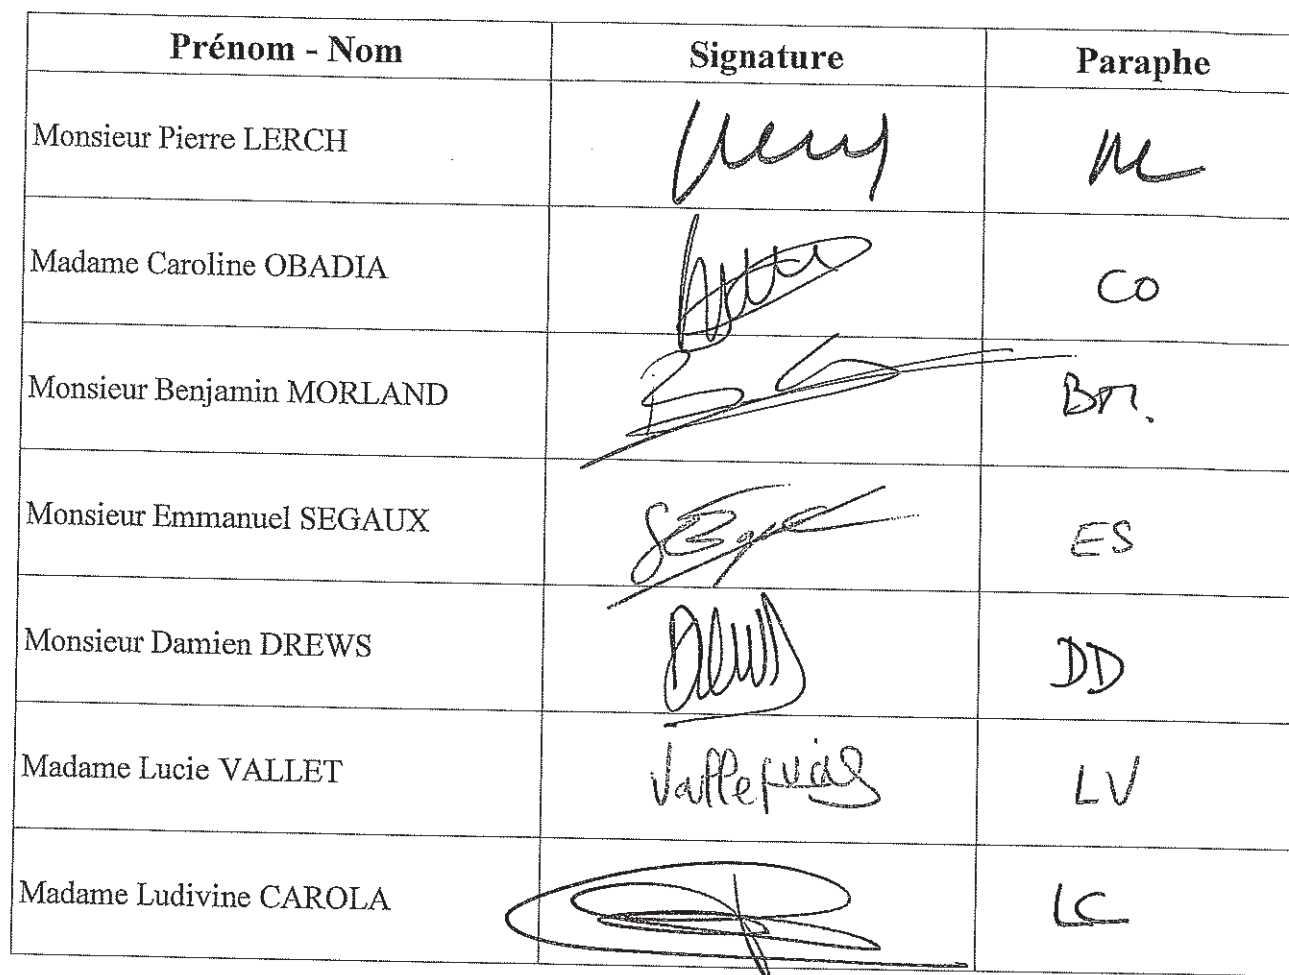 Prénom - Nom Signature Paraphe
Monsieur Pierre LERCH
Madame Caroline OBADIA CO
Monsieur Benjamin MORLAND BM.
Monsieur Emmanuel SEGAUX ES
Monsieur Damien DREWS DD
Madame Lucie VALLET LV
Madame Ludivine CAROLA LC